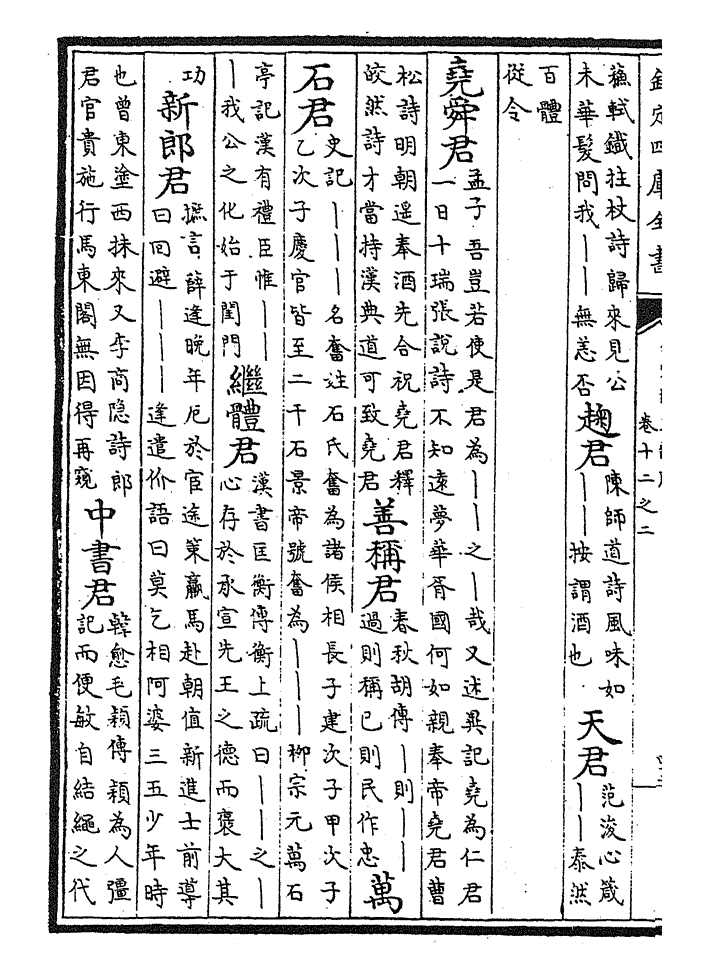 欽定四庫全書
卷十二之二
蘇軾鐵拄杖詩歸來見公
未華髮問我——無恙否
麹君
陳師道詩風味如
——按謂酒也
天君
范浚心箴
——泰然
百體
從令
堯舜君
孟子吾豈若使是君為——之—哉又述異記堯為仁君
一日十瑞張說詩不知遠夢華胥國何如親奉帝堯君曹
松詩明朝遥奉酒先合祝堯君釋
皎然詩才當持漢典道可致堯君
善稱君
春秋胡傳—則——
過則稱已則民作忠
萬
石君
史記———名奮姓石氏奮為諸侯相長子建次子甲次子
乙次子慶官皆至二千石景帝號奮為———柳宗元萬石
亭記漢有禮臣惟——
—我公之化始于閨門
繼體君
漢書匡衡傳衡上疏曰——之—
心存於承宣先王之德而褒大其
功
新郎君
摭言薛逢晚年厄於宦途策羸馬赴朝值新進士前導
曰回避———逢遣价語曰莫乞相阿婆三五少年時
也曾東塗西抹來又李商隐詩郎
君官貴施行馬東閣無因得再窺
中書君
韓愈毛穎傳穎為人彊
記而便敏自結繩之代